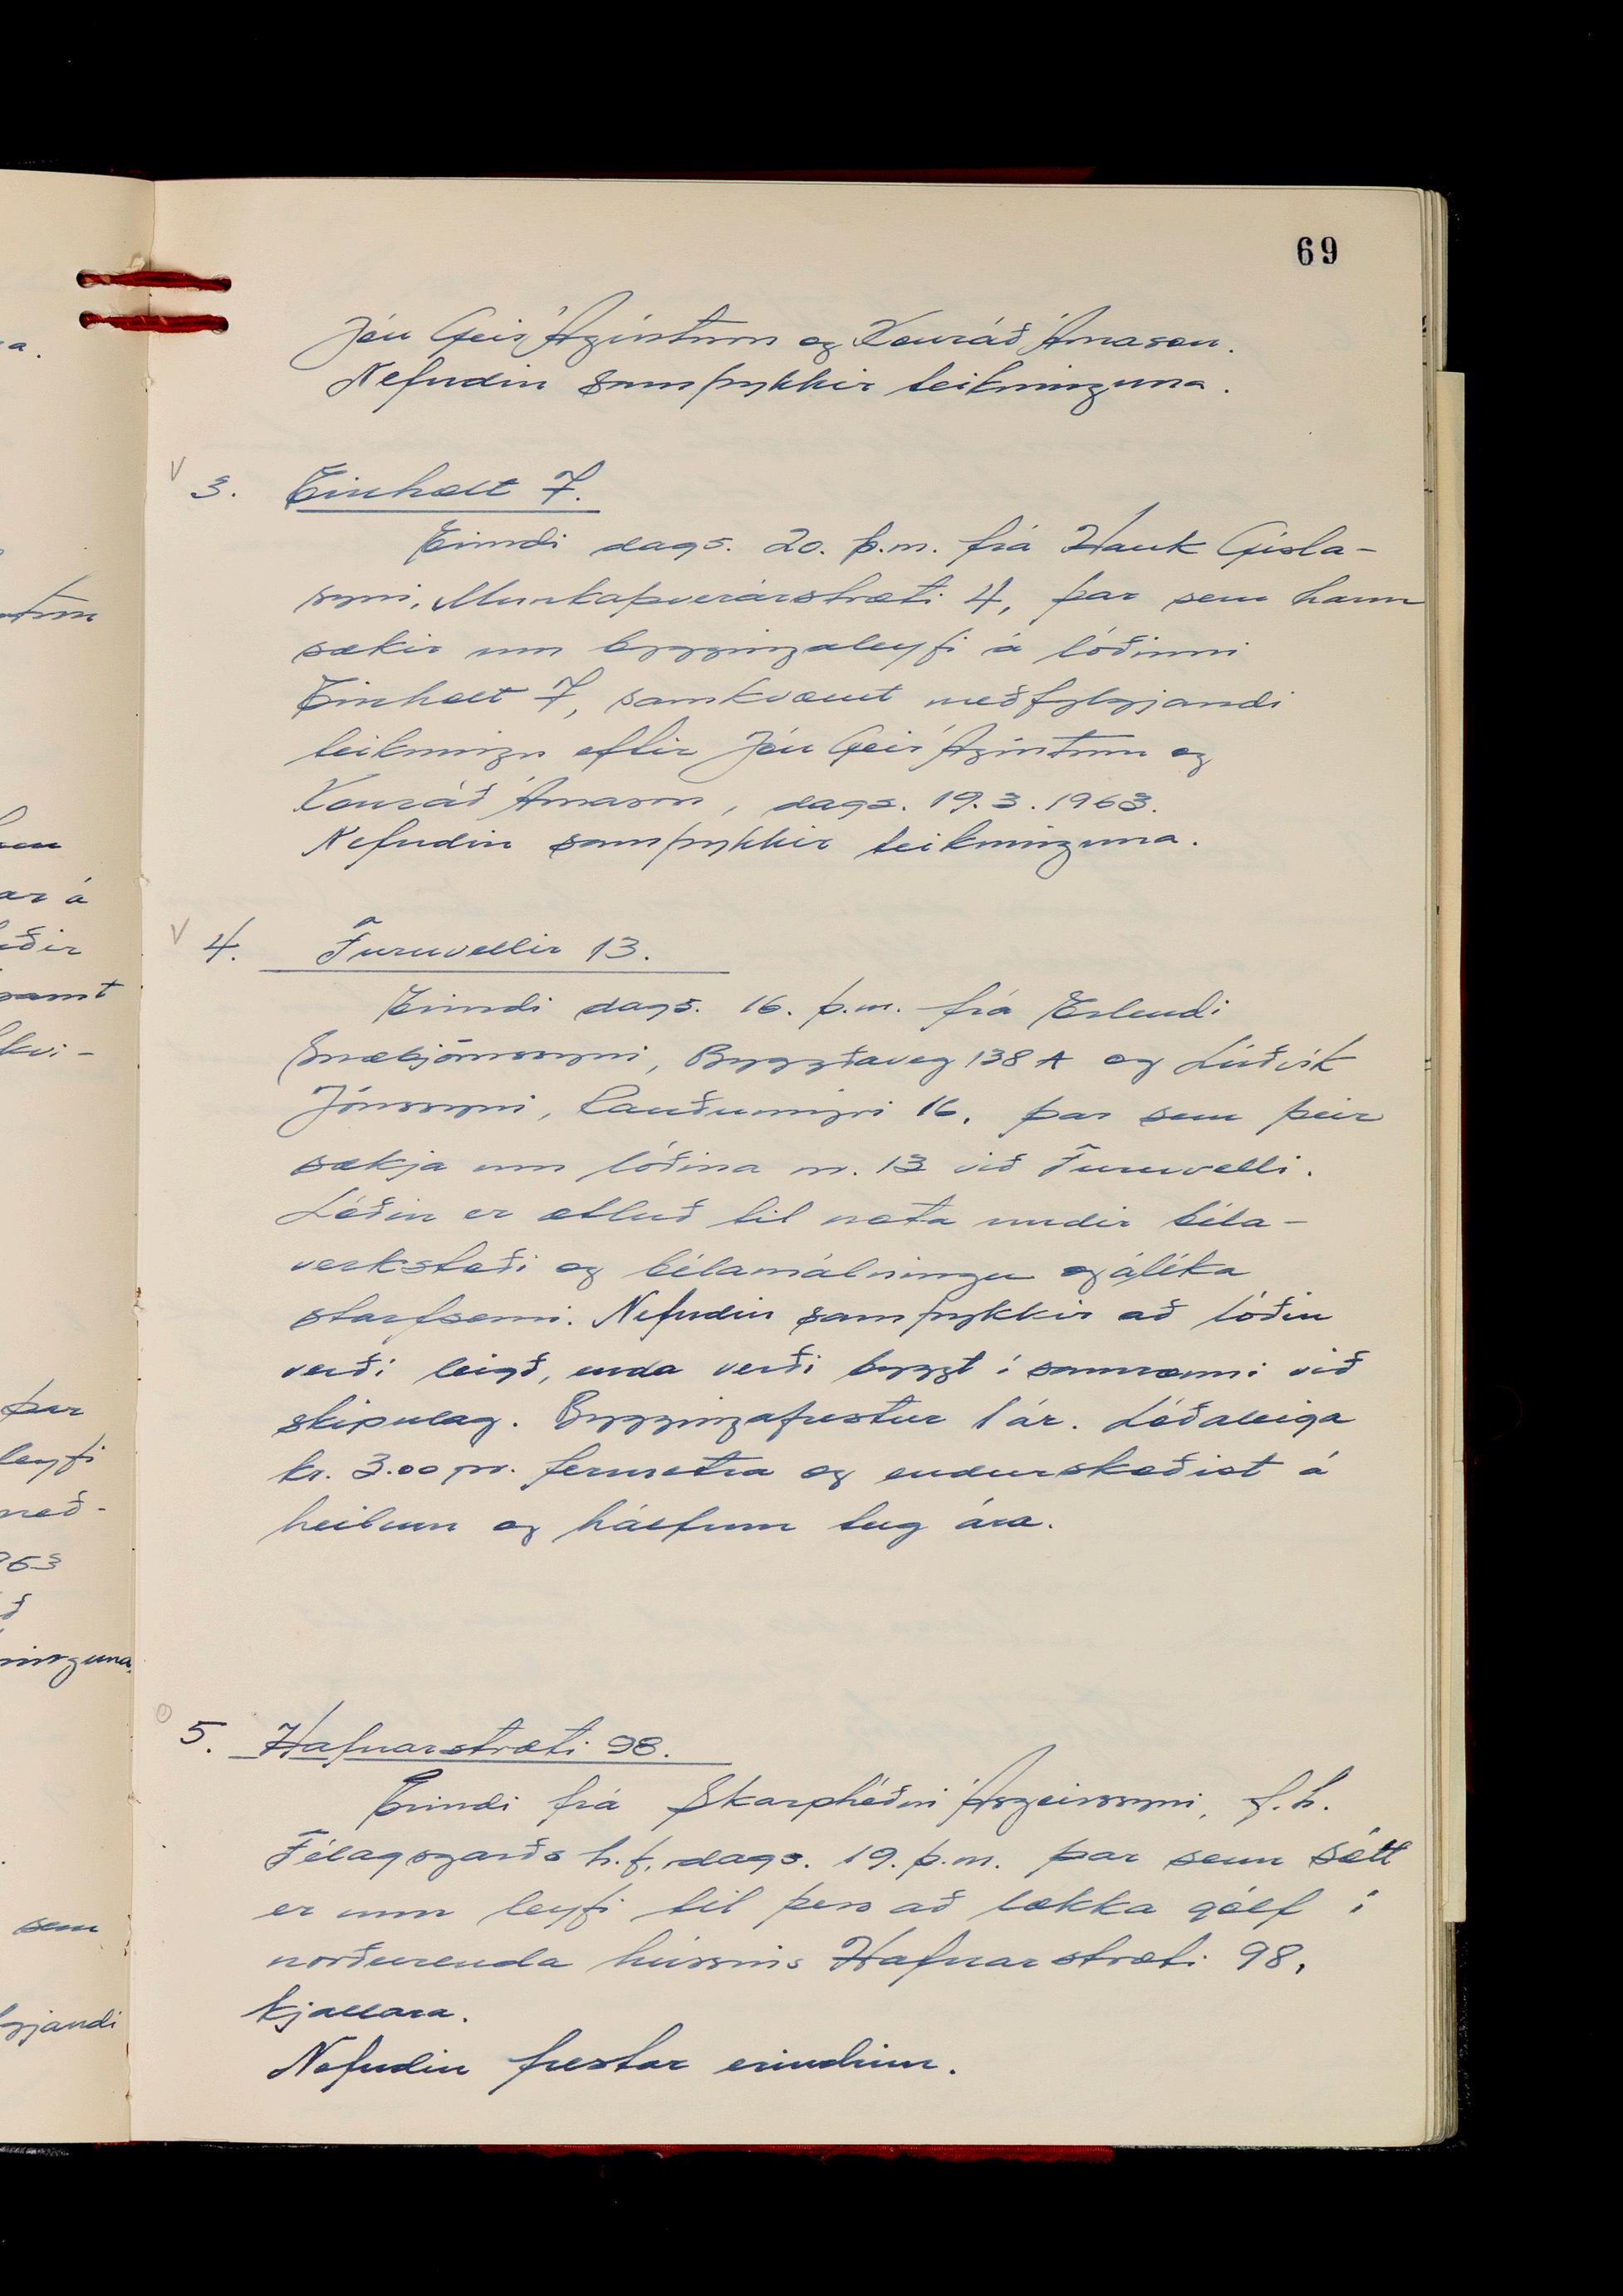 69
Jón Geir Ágústsson og Konráð Árnason.
Nefndin samþykkir teikninguna.
V
3. Einholt 7.
Erindi dags. 20. þ.m. frá Hauk Gísla-
syni, Munkaþverárstræti 4, þar sem hann
sækir um byggingaleyfi á lóðinni
Einholt 7, samkvæmt meðfylgjandi
teikningu eftir Jón Geir Ágústsson og
Konráð Árnason, dags. 19.3.1963.
Nefndin samþykkir teikninguna.
V
4. Furuvellir 13.
Erindi dags. 16. þ.m. frá Erlendi
Snæbjörnssyni, Byggðaveg 138 A og Lúðvík
Jónssyni, Rauðumýri 16, þar sem þeir
sækja um lóðina nr. 13 við Furuvelli.
Lóðin er ætluð til nota undir bíla-
verkstæði og bílamálningu og álíka
starfsemi. Nefndin samþykkir að lóðin
verði leigð, enda verði byggt í samræmi við
skipulag. Byggingafrestur 1 ár. Lóðaleiga
kr. 3.00 pr. fermetra og endurskoðist á
heilum og hálfum tug ára.
5. Hafnarstræti 98.
Erindi frá Skarphéðni Ásgeirssyni, f.h.
Félagsgarðs h.f. dags. 19. þ.m. þar sem sótt
er um leyfi til þess að lækka gólf í
norðurenda hússins Hafnarstræti 98,
kjallara.
Nefndin frestar erindinu.